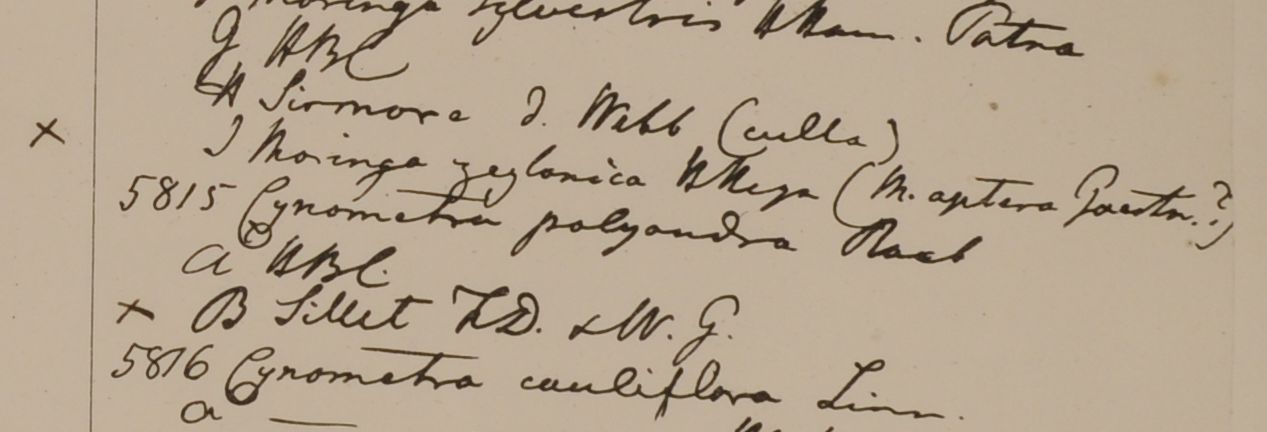 Moringa sylvestris HHam. Patna
G HBC
H Sirmore d. Webb (culta)
× I Moringa zeylanica HHeyn (M. aptera Gaertn.?)
5815 Cynometra polyandra Roxb
a HBC.
× B Sillet F.D. & W. G.
5816 Cynometra cauliflora Linn.
a —